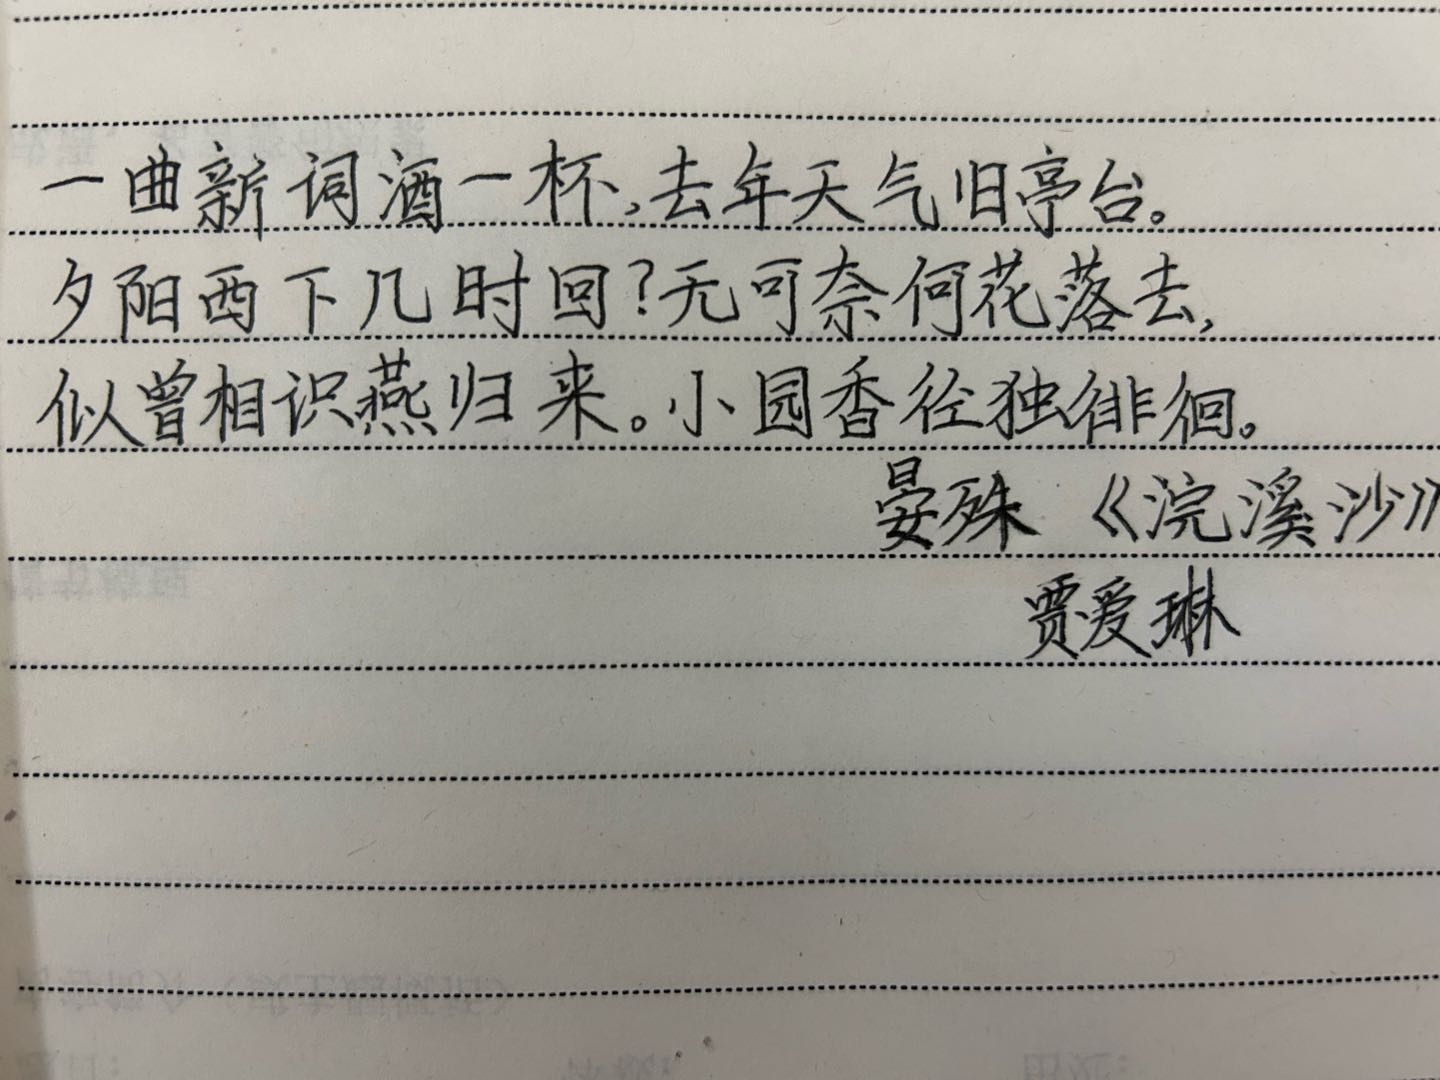 一曲新词酒一杯,去年天气旧亭台。
夕阳西下几时回?无可奈何花落去,
似曾相识燕归来。小园香径独徘徊。
晏殊 《浣溪沙》
贾爱琳